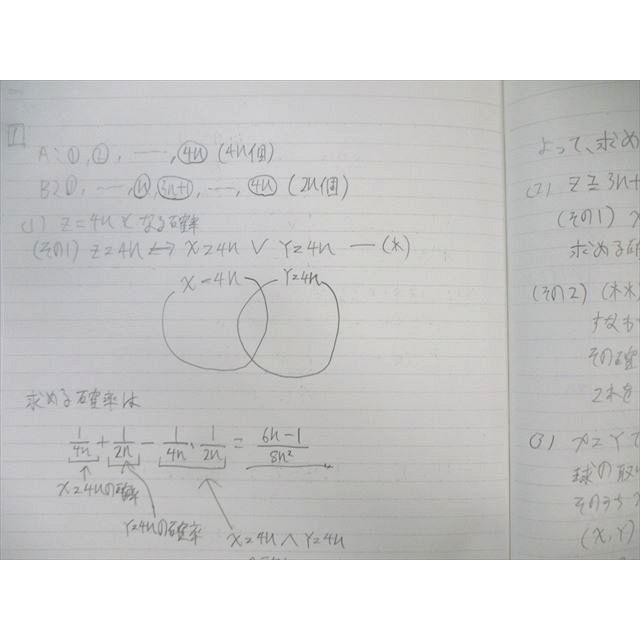 1
A: ①, ②, ……, ④n (4n個)
B: ①, ……, ⓝ, 3n+1, ……, 4n (2n個)
(1) Z=4n となる確率
(その1) Z=4n ⟷ X=4n ∨ Y=4n — (※)
X=4n Y=4n
求める確率は
1/4n + 1/2n − 1/4n · 1/2n = 6n−1/8n²
X=4nの確率
Y=4nの確率
X=4n ∧ Y=4n
よって、求め
(2) Z≧3n+
(その1)
求める確
(その2) (※※)
すなわ
その確
これを
(3) X=Yで
球の取
そのうち
(X,Y)